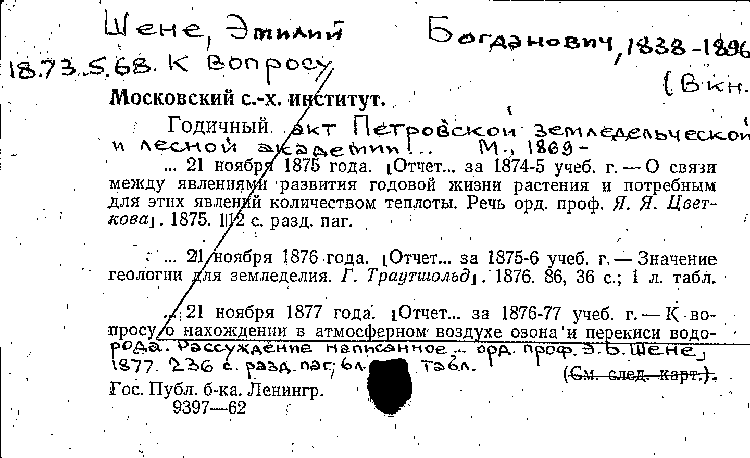 Шене, Эмилий Богданович, 1838-1896
18.73.5.68. К вопросу
(В кн.
Московский с.-х. институт.
Годичный акт Петровской земледельческой
и лесной академии... М., 1869-
... 21 ноября 1875 года. [Отчет... за 1874-5 учеб. г. — О связи
между явлениями развития годовой жизни растения и потребным
для этих явлений количеством теплоты. Речь орд. проф. Я. Я. Цвет-
кова]. 1875. 112 с. разд. паг.
... 21 ноября 1876 года. [Отчет... за 1875-6 учеб. г. — Значение
геологии для земледелия. Г. Траутшольд]. 1876. 86, 36 с.; 1 л. табл.
... 21 ноября 1877 года. [Отчет... за 1876-77 учеб. г. — К во-
просу о нахождении в атмосферном воздухе озона и перекиси водо-
рода. Рассуждение написанное... орд. проф. Э. Б. Шене]
1877. 236 с. разд. паг; 6л. табл.
(См. след. карт.).
Гос. Публ. б-ка. Ленингр.
9397—62